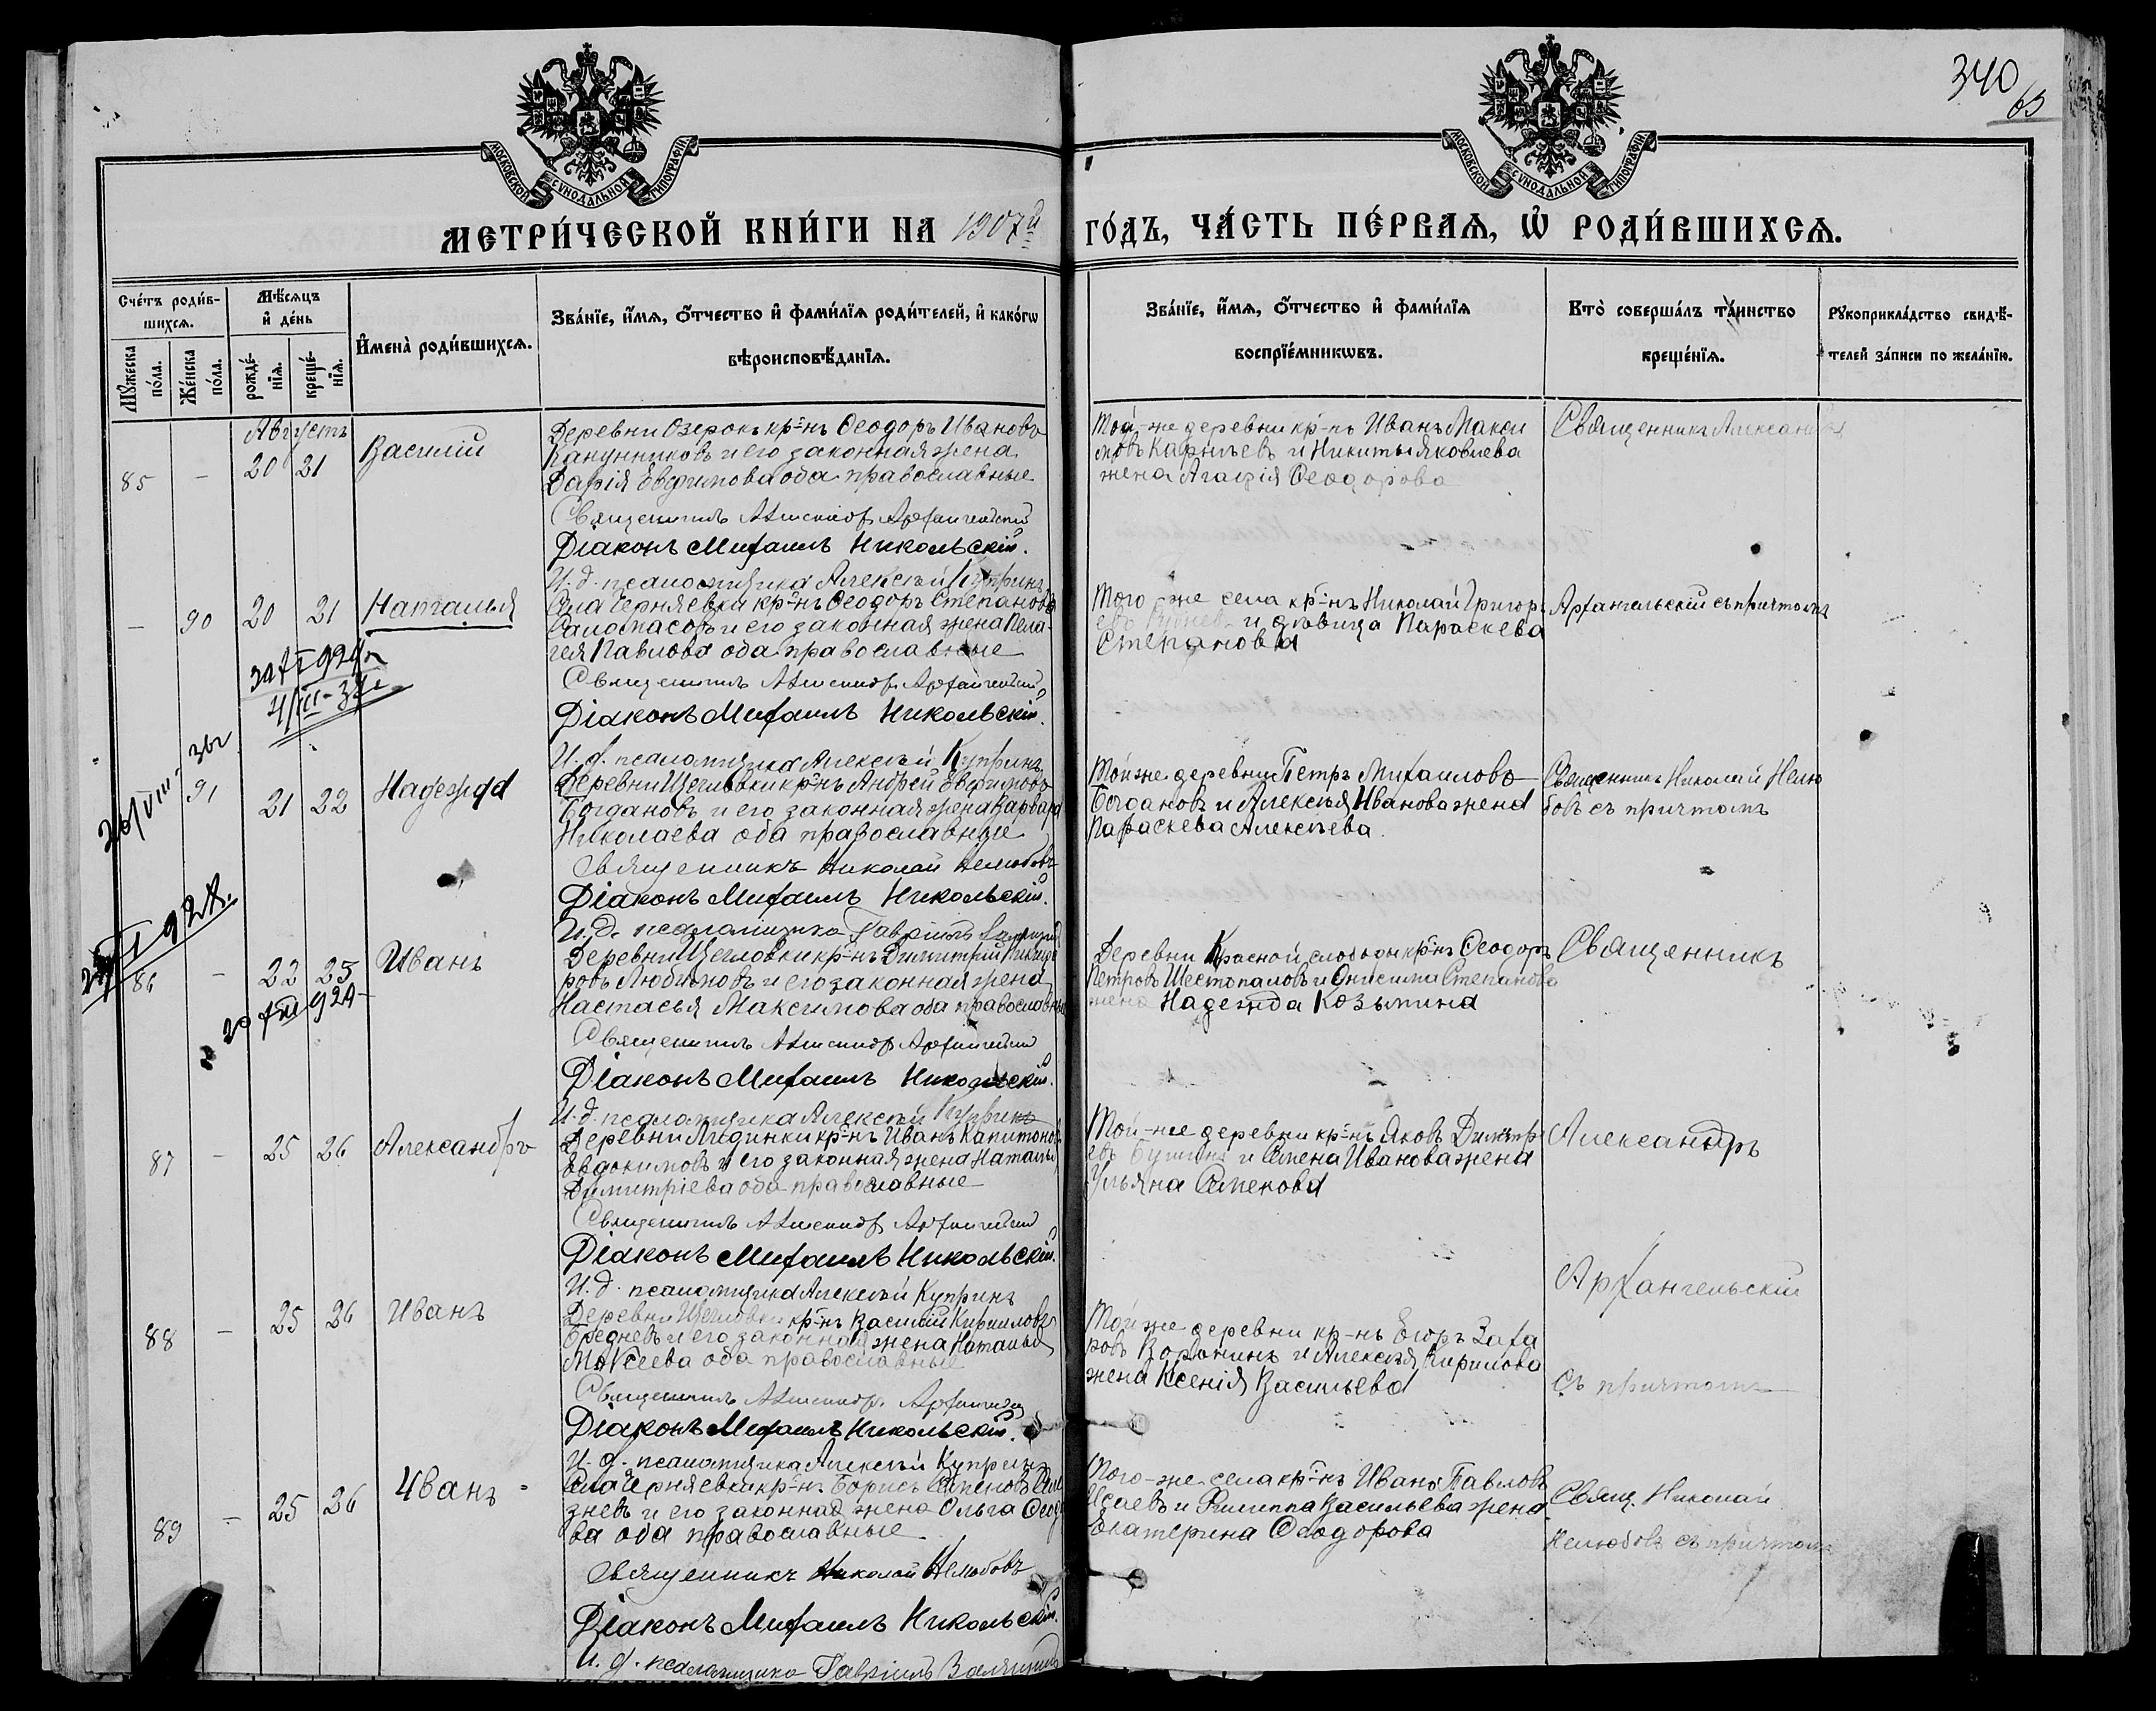 340
65
МОСКОВСКОЙ СѴНОДАЛЬНОЙ ТИПОГРАФІИ
МОСКОВСКОЙ СѴНОДАЛЬНОЙ ТИПОГРАФІИ
МЕТРИ́ЧЕСКОЙ КНИ́ГИ НА 1907й ГО́ДЪ, ЧА́СТЬ ПЕ́РВАѦ, Ѡ РОДИ́ВШИХСѦ.
Сче́тъ роди́в-
шихсѧ.
Мꙋ́жеска по́ла.
Же́нска по́ла.
Мѣ́сѧцъ и҆ де́нь
рожде́-
нїѧ.
креще́-
нїѧ.
И҆мена̀ роди́вшихсѧ.
Зва́нїе, и҆́мѧ, ѻ҆́тчество и҆ фами́лїѧ роди́телей, и҆ како́гѡ
вѣроисповѣ́данїѧ.
Зва́нїе, и҆́мѧ, ѻ҆́тчество и҆ фами́лїѧ
воспрїе́мникѡвъ.
Кто̀ соверша́лъ та́инство
креще́нїѧ.
Рꙋкоприкла́дство свидѣ́-
телей за́писи по жела́нїю.
Августъ
85 - 20 21 Василій
Деревни Озерокъ кр-нъ Ѳеодоръ Ивановъ
Канунниковъ и его законная жена
Дарія Евфимова оба православные
Священникъ Александръ Архангельскій
Діаконъ Михаилъ Никольскій.
И. д. псаломщика Алексѣй Купринъ
Той-же деревни кр-нъ Иванъ Макси
мовъ Карпѣевъ и Никиты Яковлева
жена Агафія Ѳеодорова
Священникъ Александръ
- 90 20 21 Наталья
Села Черняевки кр-нъ Ѳеодоръ Степановъ
и его законная жена Пела-
гея Павлова оба православные
Священникъ Александръ Архангельскій
Діаконъ Михаилъ Никольскій.
И. д. псаломщика Алексѣй Купринъ
Того-же села кр-нъ Николай Григорь
евъ и дѣвица Параскева
Степанова
Архангельскій съ причтомъ
91 21 22 Надежда
Деревни Щегловки кр-нъ Андрей Евфимовъ
Богдановъ и его законная жена Варвара
Николаева оба православные
Священникъ Николай Нелюбовъ
Діаконъ Михаилъ Никольскій.
И. д. псаломщика Гавріилъ
Той же деревни Петръ Михаиловъ
Богдановъ и Алексѣя Иванова жена
Параскева Алексѣева.
Священникъ Николай Нелю
бовъ съ причтомъ
86 - 22 23 Иванъ
Деревни Щегловки кр-нъ Димитрій Никифо
ровъ Любимовъ и его законная жена
Настасья Максимова оба православные
Священникъ Александръ Архангельскій
Діаконъ Михаилъ Никольскій.
И. д. псаломщика Алексѣй Купринъ
Деревни Красной слободы кр-нъ Ѳеодоръ
Петровъ Шестопаловъ и Онисима Степанова
жена Надежда Козьмина
Священникъ
87 - 25 26 Александръ
Деревни Лидинки кр-нъ Иванъ Капитоновъ
Евдокимовъ и его законная жена Наталья
Димитріева оба православные
Священникъ Александръ Архангельскій
Діаконъ Михаилъ Никольскій.
И. д. псаломщика Алексѣй Купринъ
Той-же деревни кр-нъ Яковъ Димитрі
евъ и Семена Иванова жена
Ульяна Семенова
Александръ
88 - 25 26 Иванъ
Деревни Щегловки кр-нъ Василій Кирилловъ
Бредневъ и его законная жена Наталья
Моѵсеева оба православные
Священникъ Александръ Архангельскій
Діаконъ Михаилъ Никольскій.
И. д. псаломщика Алексѣй Купринъ
Той же деревни кр-нъ Егоръ Заха
ровъ Воронинъ и Алексѣя Кирилова
жена Ксенія Васильева
Архангельскій
съ причтомъ
89 - 25 26 Иванъ
Села Черняевки кр-нъ Борисъ Семеновъ
зневъ и его законная жена Ольга
ва оба православные
Священникъ Николай Нелюбовъ
Діаконъ Михаилъ Никольскій.
И. д. псаломщика Гавріилъ
Того-же села кр-нъ Иванъ Павловъ
Исаевъ и Филиппа Васильева жена
Екатерина Ѳеодорова
Свящ. Николай
Нелюбовъ съ причтомъ